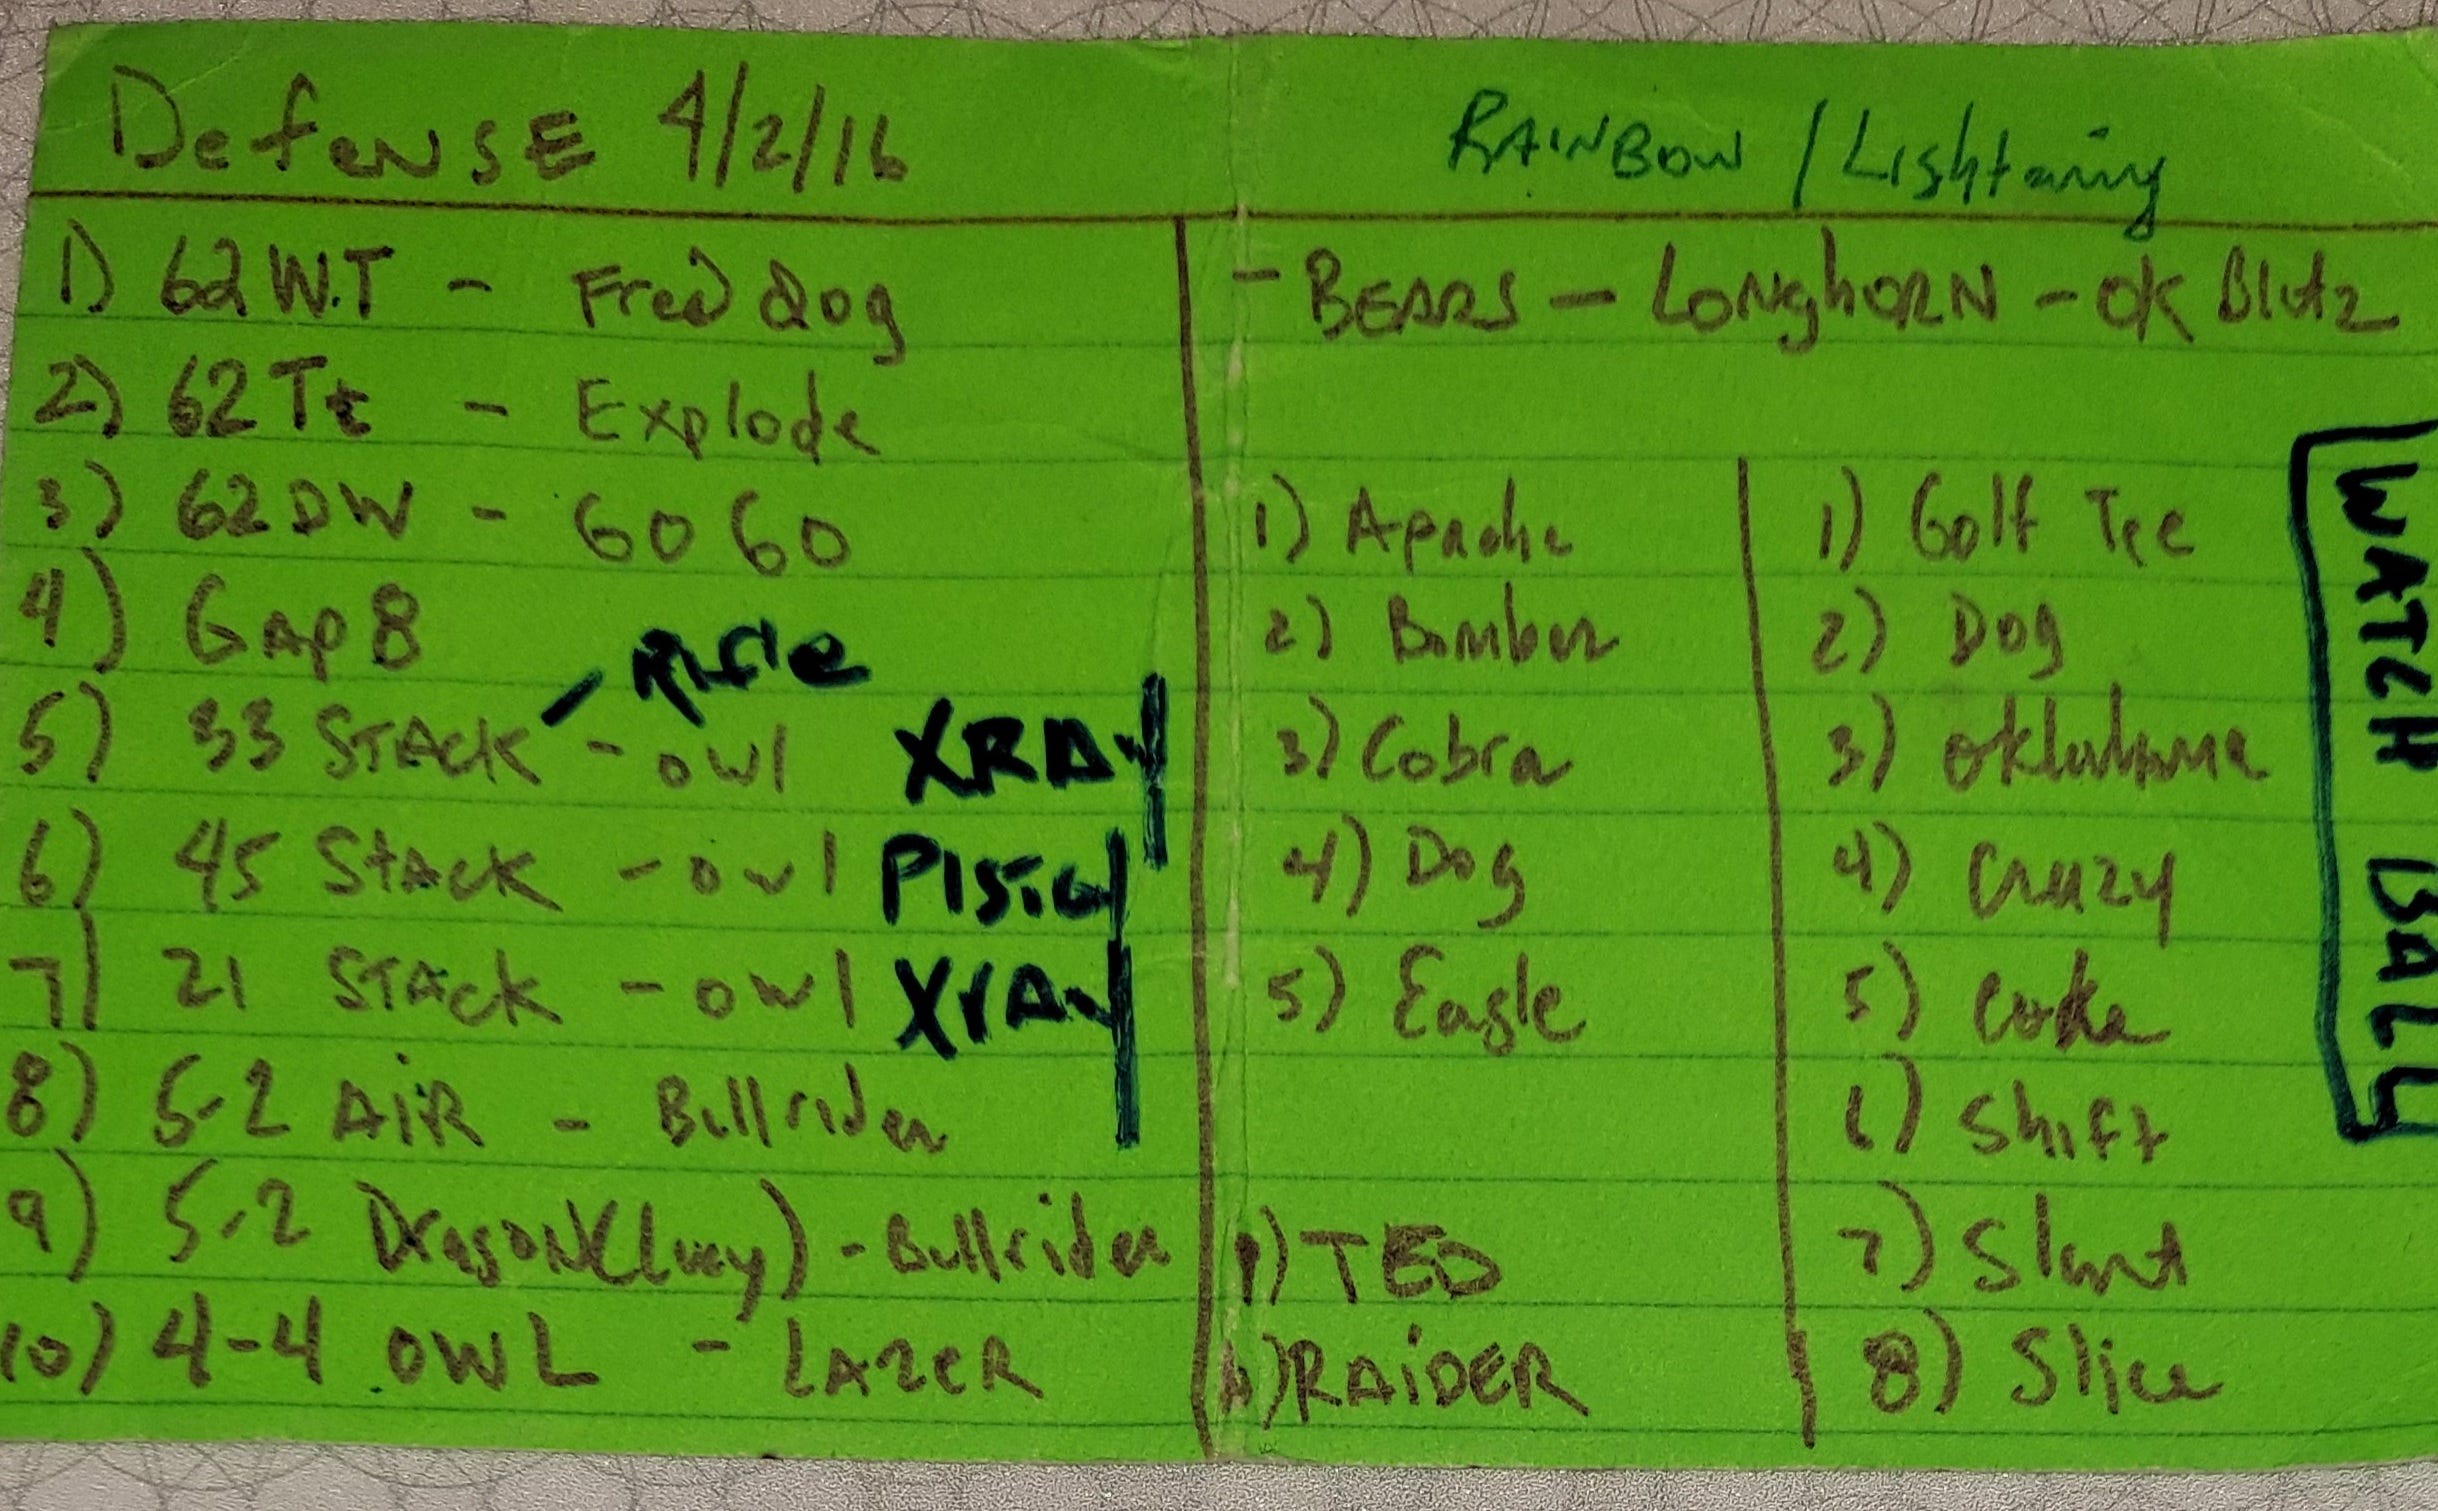 Defense 4/2/16
1) 62 W.T - Fred dog
2) 62 Tt - Explode
3) 62 DW - 60 60
4) Gap 8
5) 33 STACK - Rifle - owl XRAY
6) 45 STACK - owl PISTOL
7) 21 STACK - owl XrAy
8) 5-2 AiR - Bullrider
9) 5-2 Dragon (Lucy) - Bullrider
10) 4-4 OWL - LAZER
RAINBOW / Lightning
- BEARS - LONGhORN - OK Blitz
1) Apache
2) Bomber
3) Cobra
4) Dog
5) Eagle
TED
RAiDER
1) Golf Tee
2) Dog
3) Oklahoma
4) Crazy
5) Coke
6) Shift
7) Slant
8) Slice
WATCH BALL